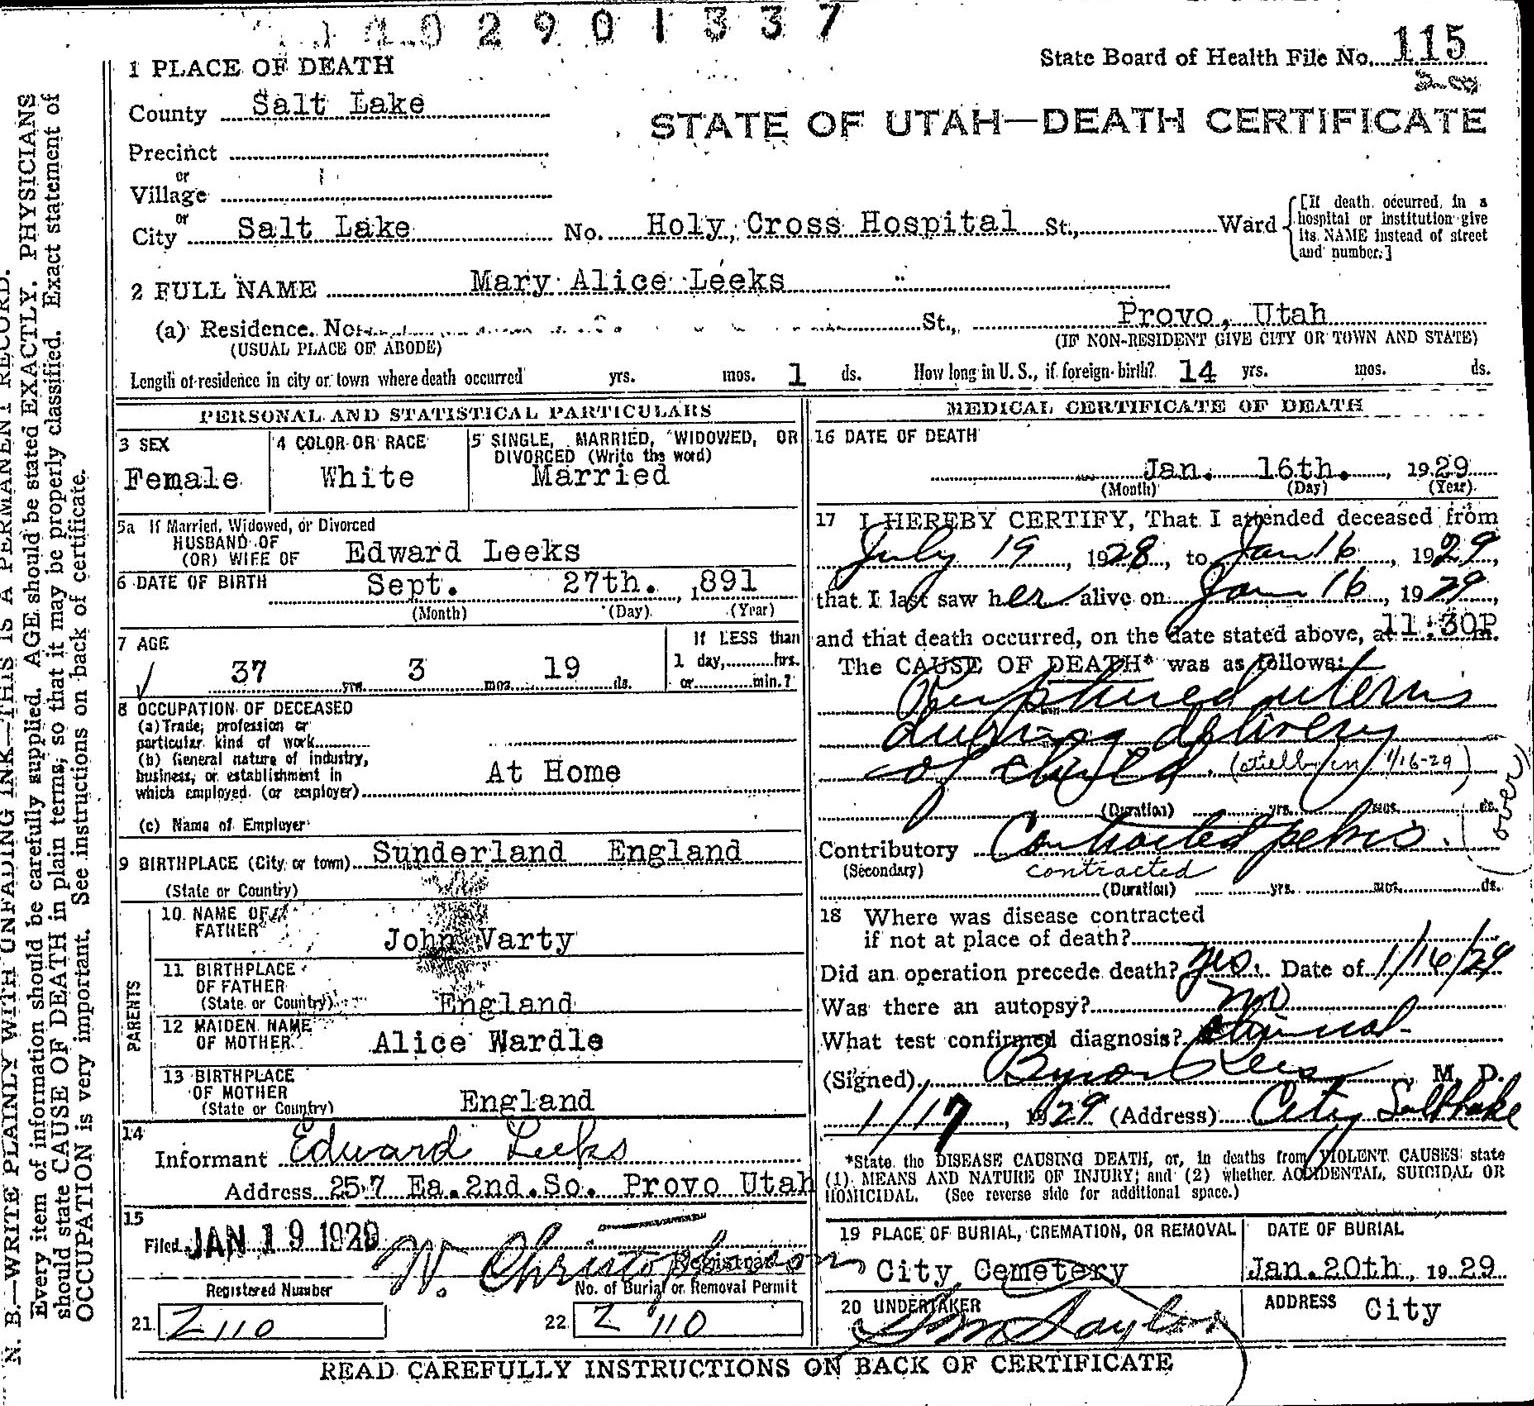 2901337
1 PLACE OF DEATH
State Board of Health File No. 115
County Salt Lake
STATE OF UTAH—DEATH CERTIFICATE
Precinct
or
Village
or
City Salt Lake No. Holy Cross Hospital St., Ward
[If death occurred in a
hospital or institution give
its NAME instead of street
and number.]
2 FULL NAME Mary Alice Leeks
(a) Residence. No. St., Provo, Utah
(USUAL PLACE OF ABODE) (IF NON-RESIDENT GIVE CITY OR TOWN AND STATE)
Length of residence in city or town where death occurred yrs. mos. 1 ds. How long in U. S., if foreign birth? 14 yrs. mos. ds.
PERSONAL AND STATISTICAL PARTICULARS
3 SEX
Female
4 COLOR OR RACE
White
5 SINGLE, MARRIED, WIDOWED, OR
DIVORCED (Write the word)
Married
5a If Married, Widowed, or Divorced
HUSBAND OF
(OR) WIFE OF Edward Leeks
6 DATE OF BIRTH Sept. 27th. , 1891
(Month) (Day) (Year)
7 AGE
37 yrs. 3 mos. 19 ds.
If LESS than
1 day, hrs.
or min.?
8 OCCUPATION OF DECEASED
(a) Trade, profession or
particular kind of work
(b) General nature of industry,
business, or establishment in
which employed (or employer) At Home
(c) Name of Employer
9 BIRTHPLACE (City or town) Sunderland England
(State or Country)
PARENTS
10 NAME OF
FATHER John Varty
11 BIRTHPLACE
OF FATHER
(State or Country) England
12 MAIDEN NAME
OF MOTHER Alice Wardle
13 BIRTHPLACE
OF MOTHER
(State or Country) England
14
Informant Edward Leeks
Address 257 Ea. 2nd. So. Provo Utah
15
Filed JAN 19 1929 W. Christopherson
Registrar
Registered Number No. of Burial or Removal Permit
21 Z 110 22 Z 110
MEDICAL CERTIFICATE OF DEATH
16 DATE OF DEATH
Jan. 16th. , 1929
(Month) (Day) (Year)
17 I HEREBY CERTIFY, That I attended deceased from
July 19, 1928, to Jan 16, 1929
that I last saw her alive on Jan 16, 1929,
and that death occurred, on the date stated above, at 11:30P m.
The CAUSE OF DEATH* was as follows:
Ruptured uterus
during delivery
of child. (stillborn 1/16-29)
(over)
(Duration) yrs. mos. ds.
Contributory Contracted pelvis.
(Secondary) contracted
(Duration) yrs. mos. ds.
18 Where was disease contracted
if not at place of death?
Did an operation precede death? yes. Date of 1/16/29
Was there an autopsy? no
What test confirmed diagnosis? clinical
(Signed) Byron Rees M. D.
1/17, 1929 (Address) City Salt Lake
*State the DISEASE CAUSING DEATH, or, in deaths from VIOLENT CAUSES state
(1) MEANS AND NATURE OF INJURY; and (2) whether ACCIDENTAL, SUICIDAL OR
HOMICIDAL. (See reverse side for additional space.)
19 PLACE OF BURIAL, CREMATION, OR REMOVAL
City Cemetery
DATE OF BURIAL
Jan. 20th, 1929
20 UNDERTAKER
Taylor
ADDRESS City
READ CAREFULLY INSTRUCTIONS ON BACK OF CERTIFICATE
N. B.—WRITE PLAINLY WITH UNFADING INK—THIS IS A PERMANENT RECORD.
Every item of information should be carefully supplied. AGE should be stated EXACTLY. PHYSICIANS
should state CAUSE OF DEATH in plain terms, so that it may be properly classified. Exact statement of
OCCUPATION is very important. See instructions on back of certificate.